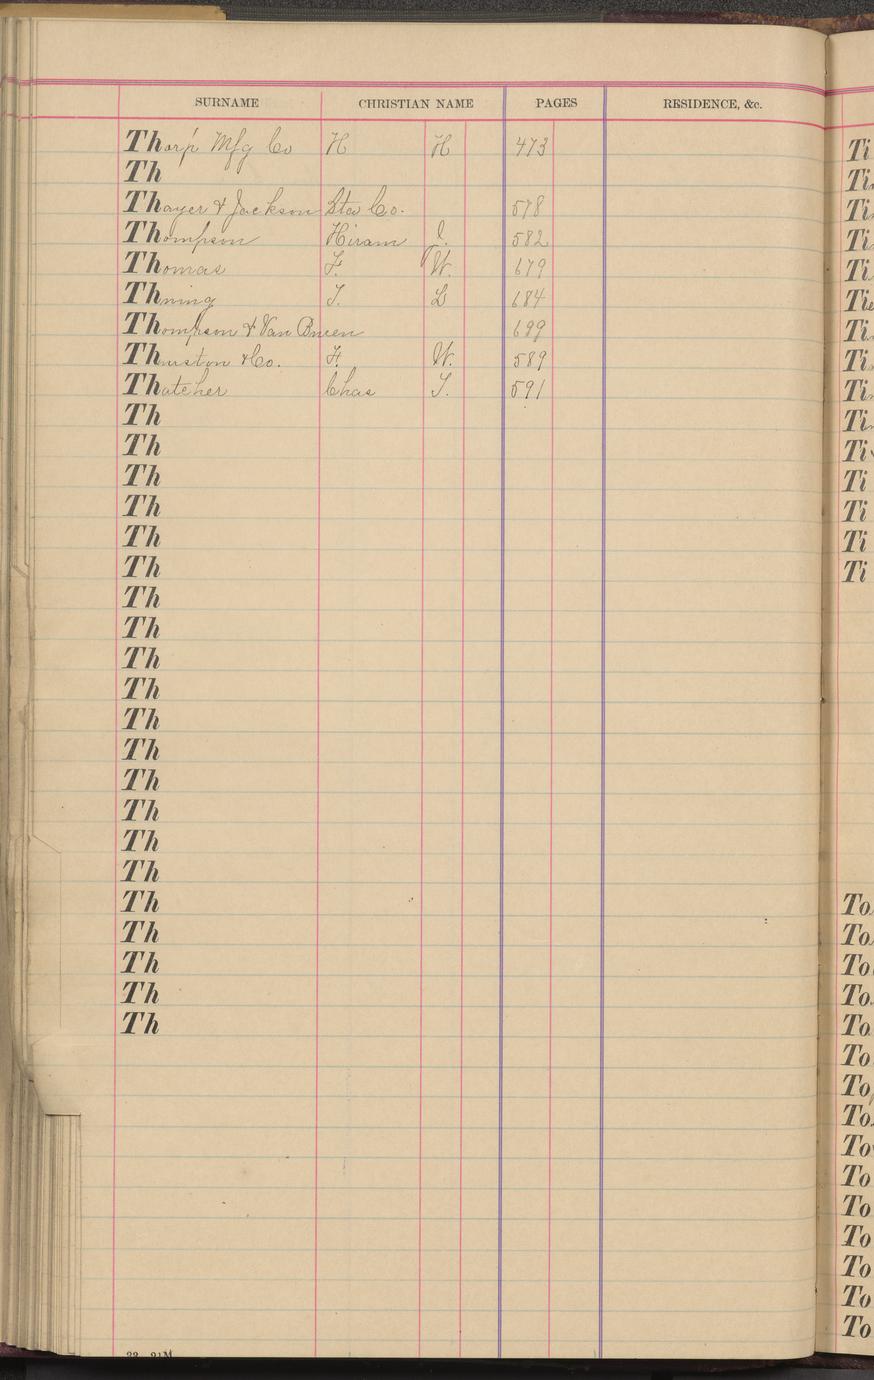 SURNAME CHRISTIAN NAME PAGES RESIDENCE, &c.
Thorp Mfg Co H H 473
Th
Thayer & Jackson Sta Co. 578
Thompson Hiram I. 582
Thomas F. W. 679
Thning T. L 684
Thompson & Van Buren 699
Thurston & Co. F. W. 589
Thatcher Chas T. 591
Th
Th
Th
Th
Th
Th
Th
Th
Th
Th
Th
Th
Th
Th
Th
Th
Th
Th
Th
Th
Th
Ti
Ti
Ti
Ti
Ti
Ti
Ti
Ti
Ti
Ti
Ti
Ti
Ti
Ti
Ti
To
To
To
To
To
To
To
To
To
To
To
To
To
To
To